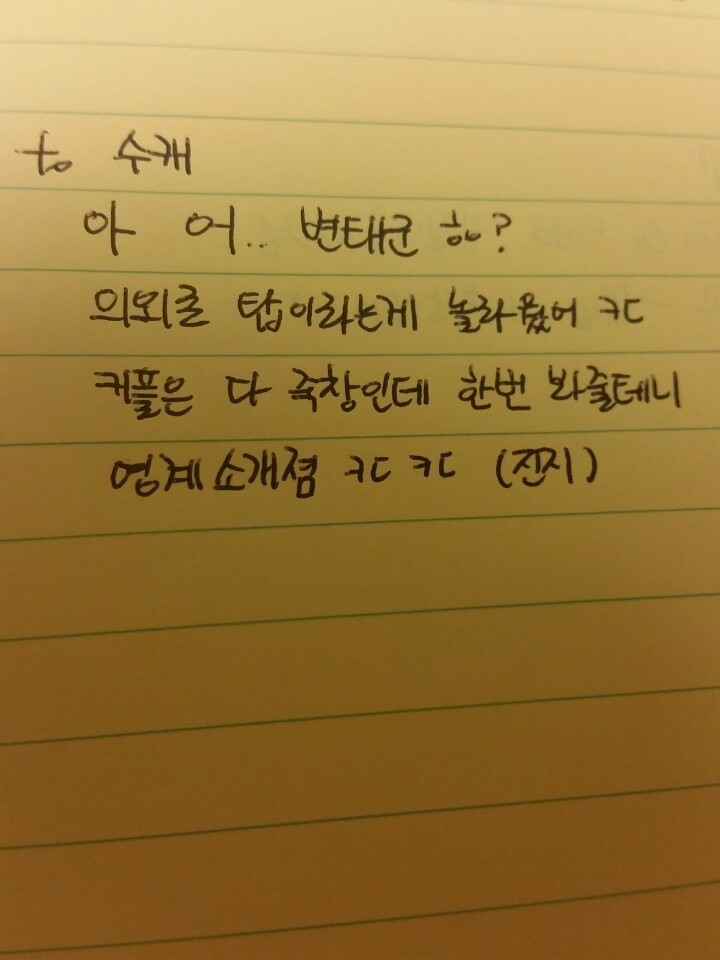 to 수개
아 어.. 변태군 ㅎㅇ?
의외로 탑이라는게 놀라웠어 ㅋㄷ
커플은 다 죽창인데 한번 봐줄테니
영계소개졈 ㅋㄷㅋㄷ (진지)